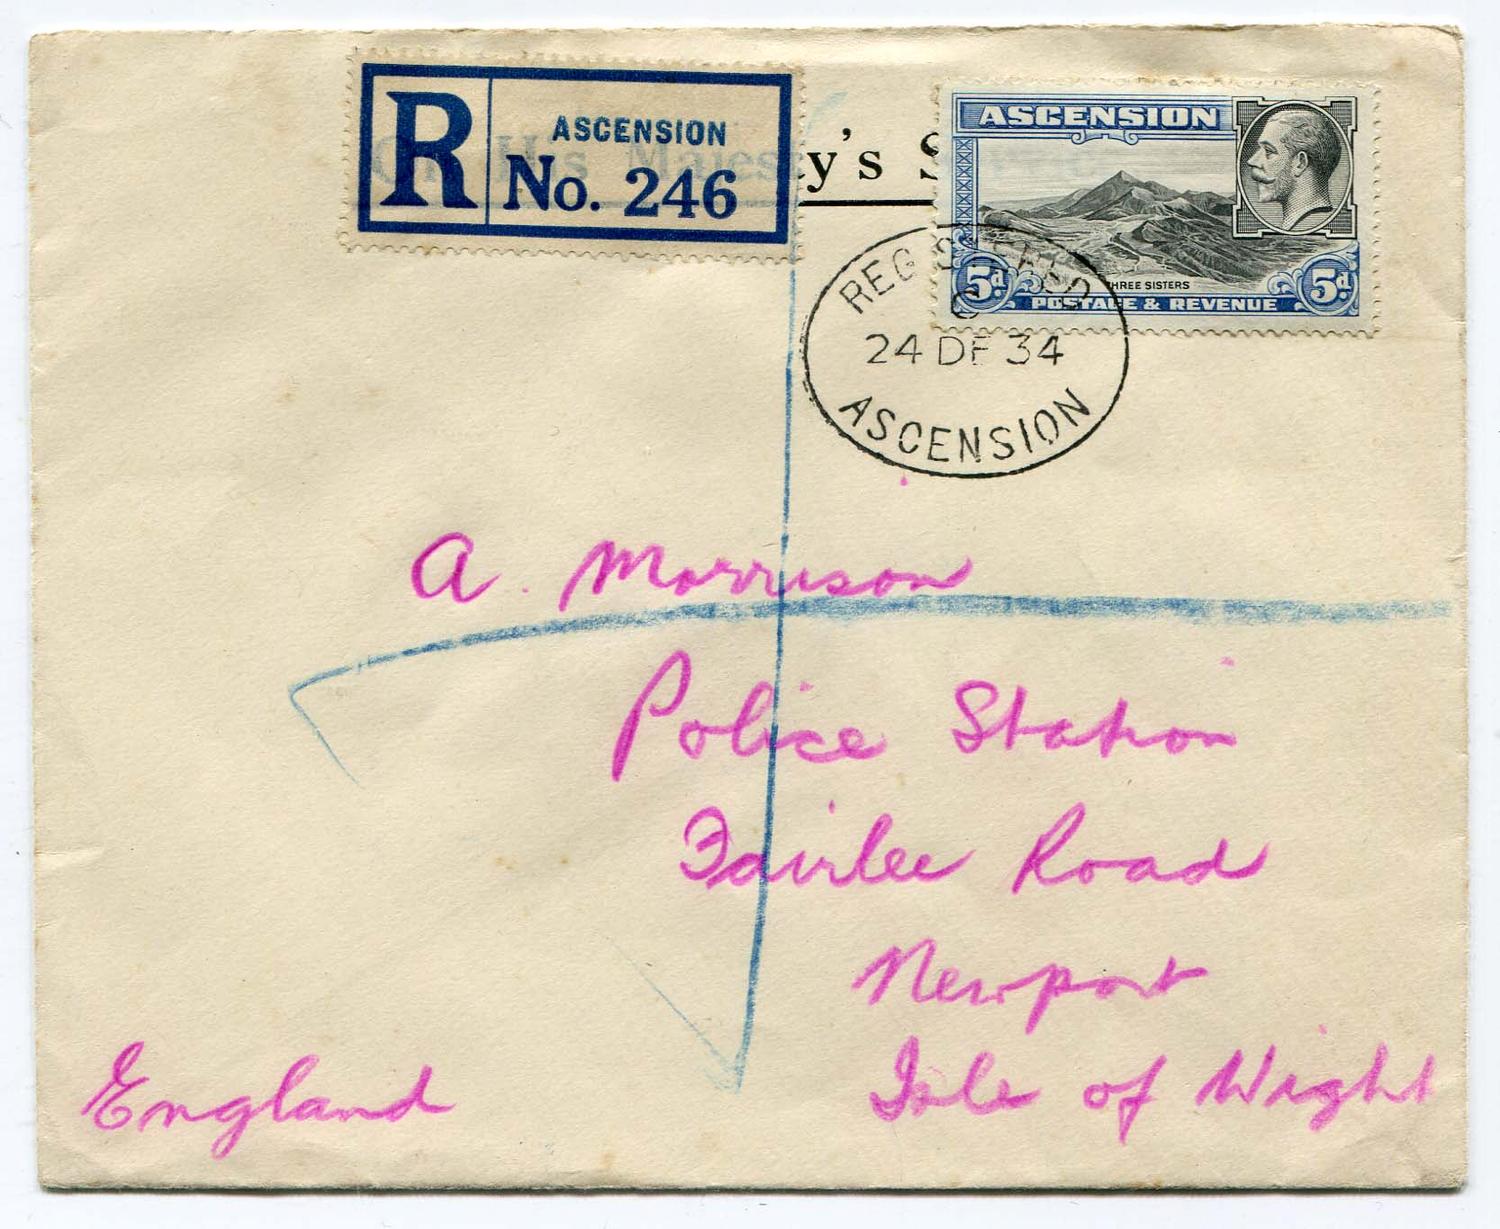 R ASCENSION
No. 246
On His Majesty's S
ASCENSION
5d THREE SISTERS 5d
POSTAGE & REVENUE
REGISTERED
C
24 DE 34
ASCENSION
A. Morrison
Police Station
Fairlee Road
Newport
Isle of Wight
England